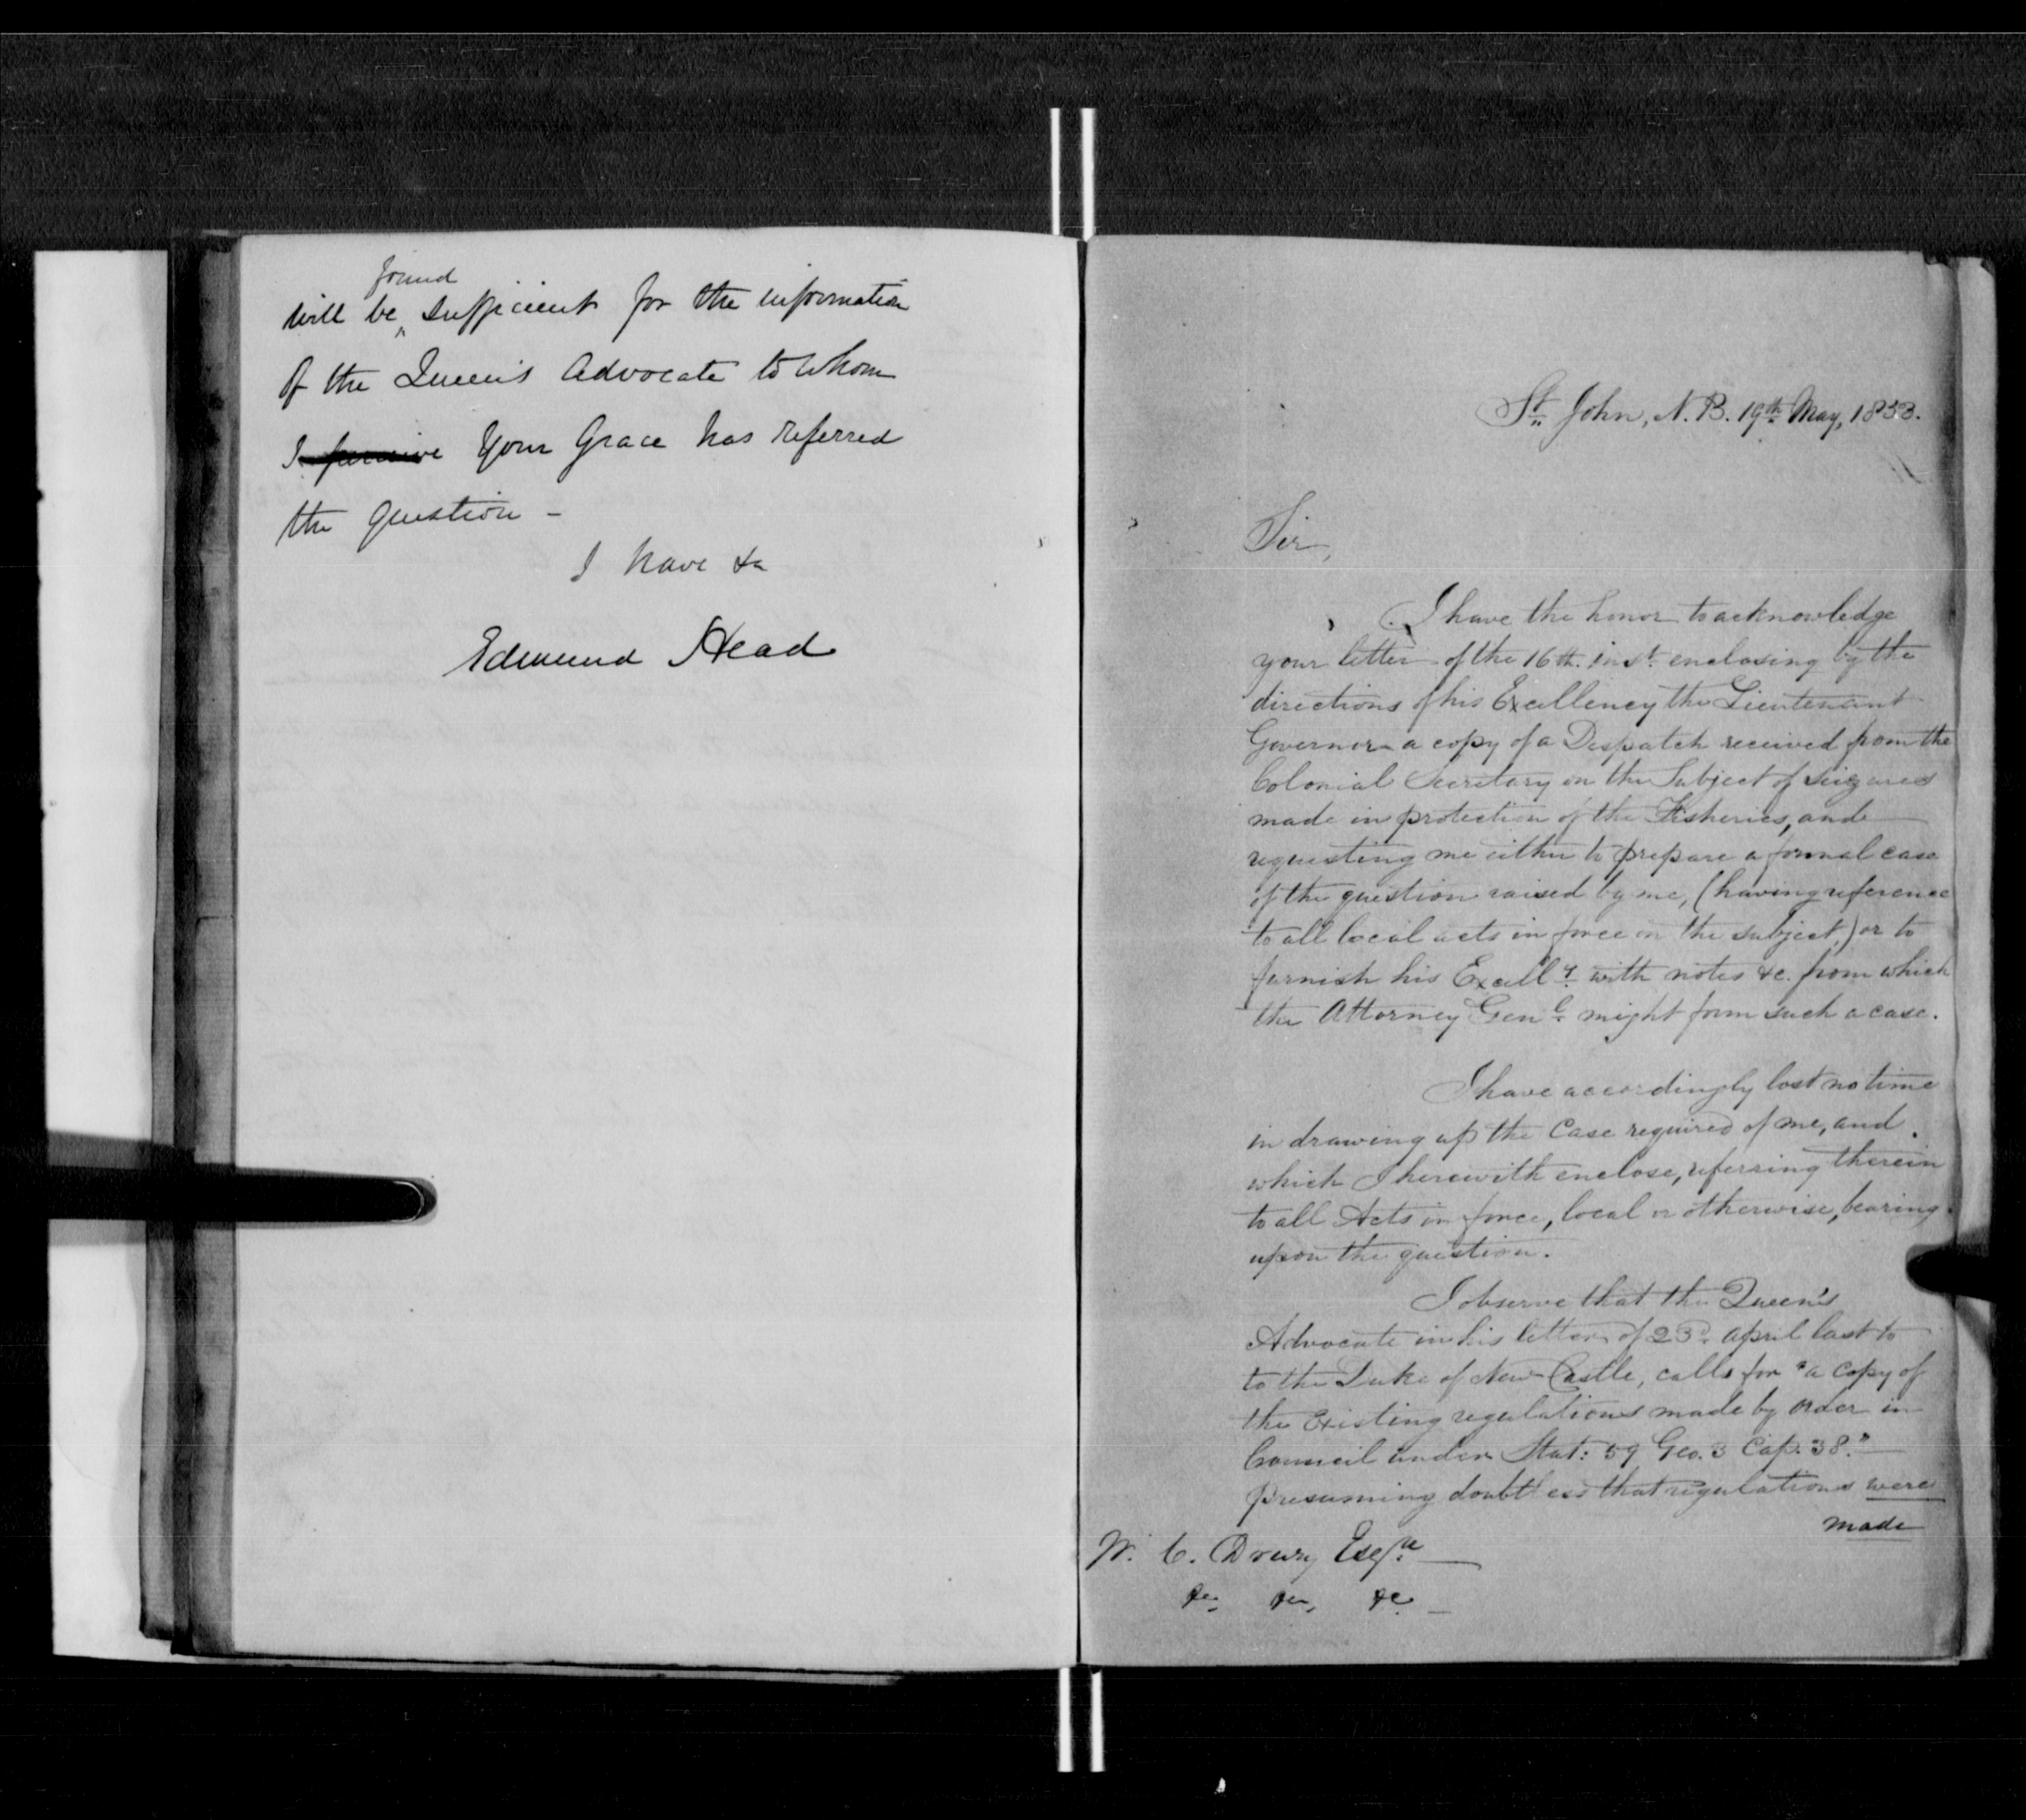 found
will be sufficient for the information
of the Queen's Advocate to whom
I perceive Your Grace has referred
the question –
I have &c
Edmund Head
St. John, N.B. 19th May, 1853.
Sir,
I have the honor to acknowledge
your letter of the 16th. inst. enclosing by the
directions of his Excellency the Lieutenant
Governor a copy of a Despatch received from the
Colonial Secretary on the Subject of Seizures
made in protection of the Fisheries, and
requesting me either to prepare a formal case
of the question raised by me, (having reference
to all local acts in force on the subject,) or to
furnish his Excelly. with notes &c. from which
the Attorney Genl. might form such a case.
I have accordingly lost no time
in drawing up the Case required of me, and
which I herewith enclose, referring therein
to all Acts in force, local or otherwise, bearing
upon the question.
I observe that the Queen's
Advocate in his letter of 23d. April last to
to the Duke of New Castle, calls for "a copy of
the Existing regulations made by order in
Council under Stat: 59 Geo. 3 Cap. 38."
presuming doubtless that regulations were
made
W. C. Drury Esqre
&c. &c. &c.